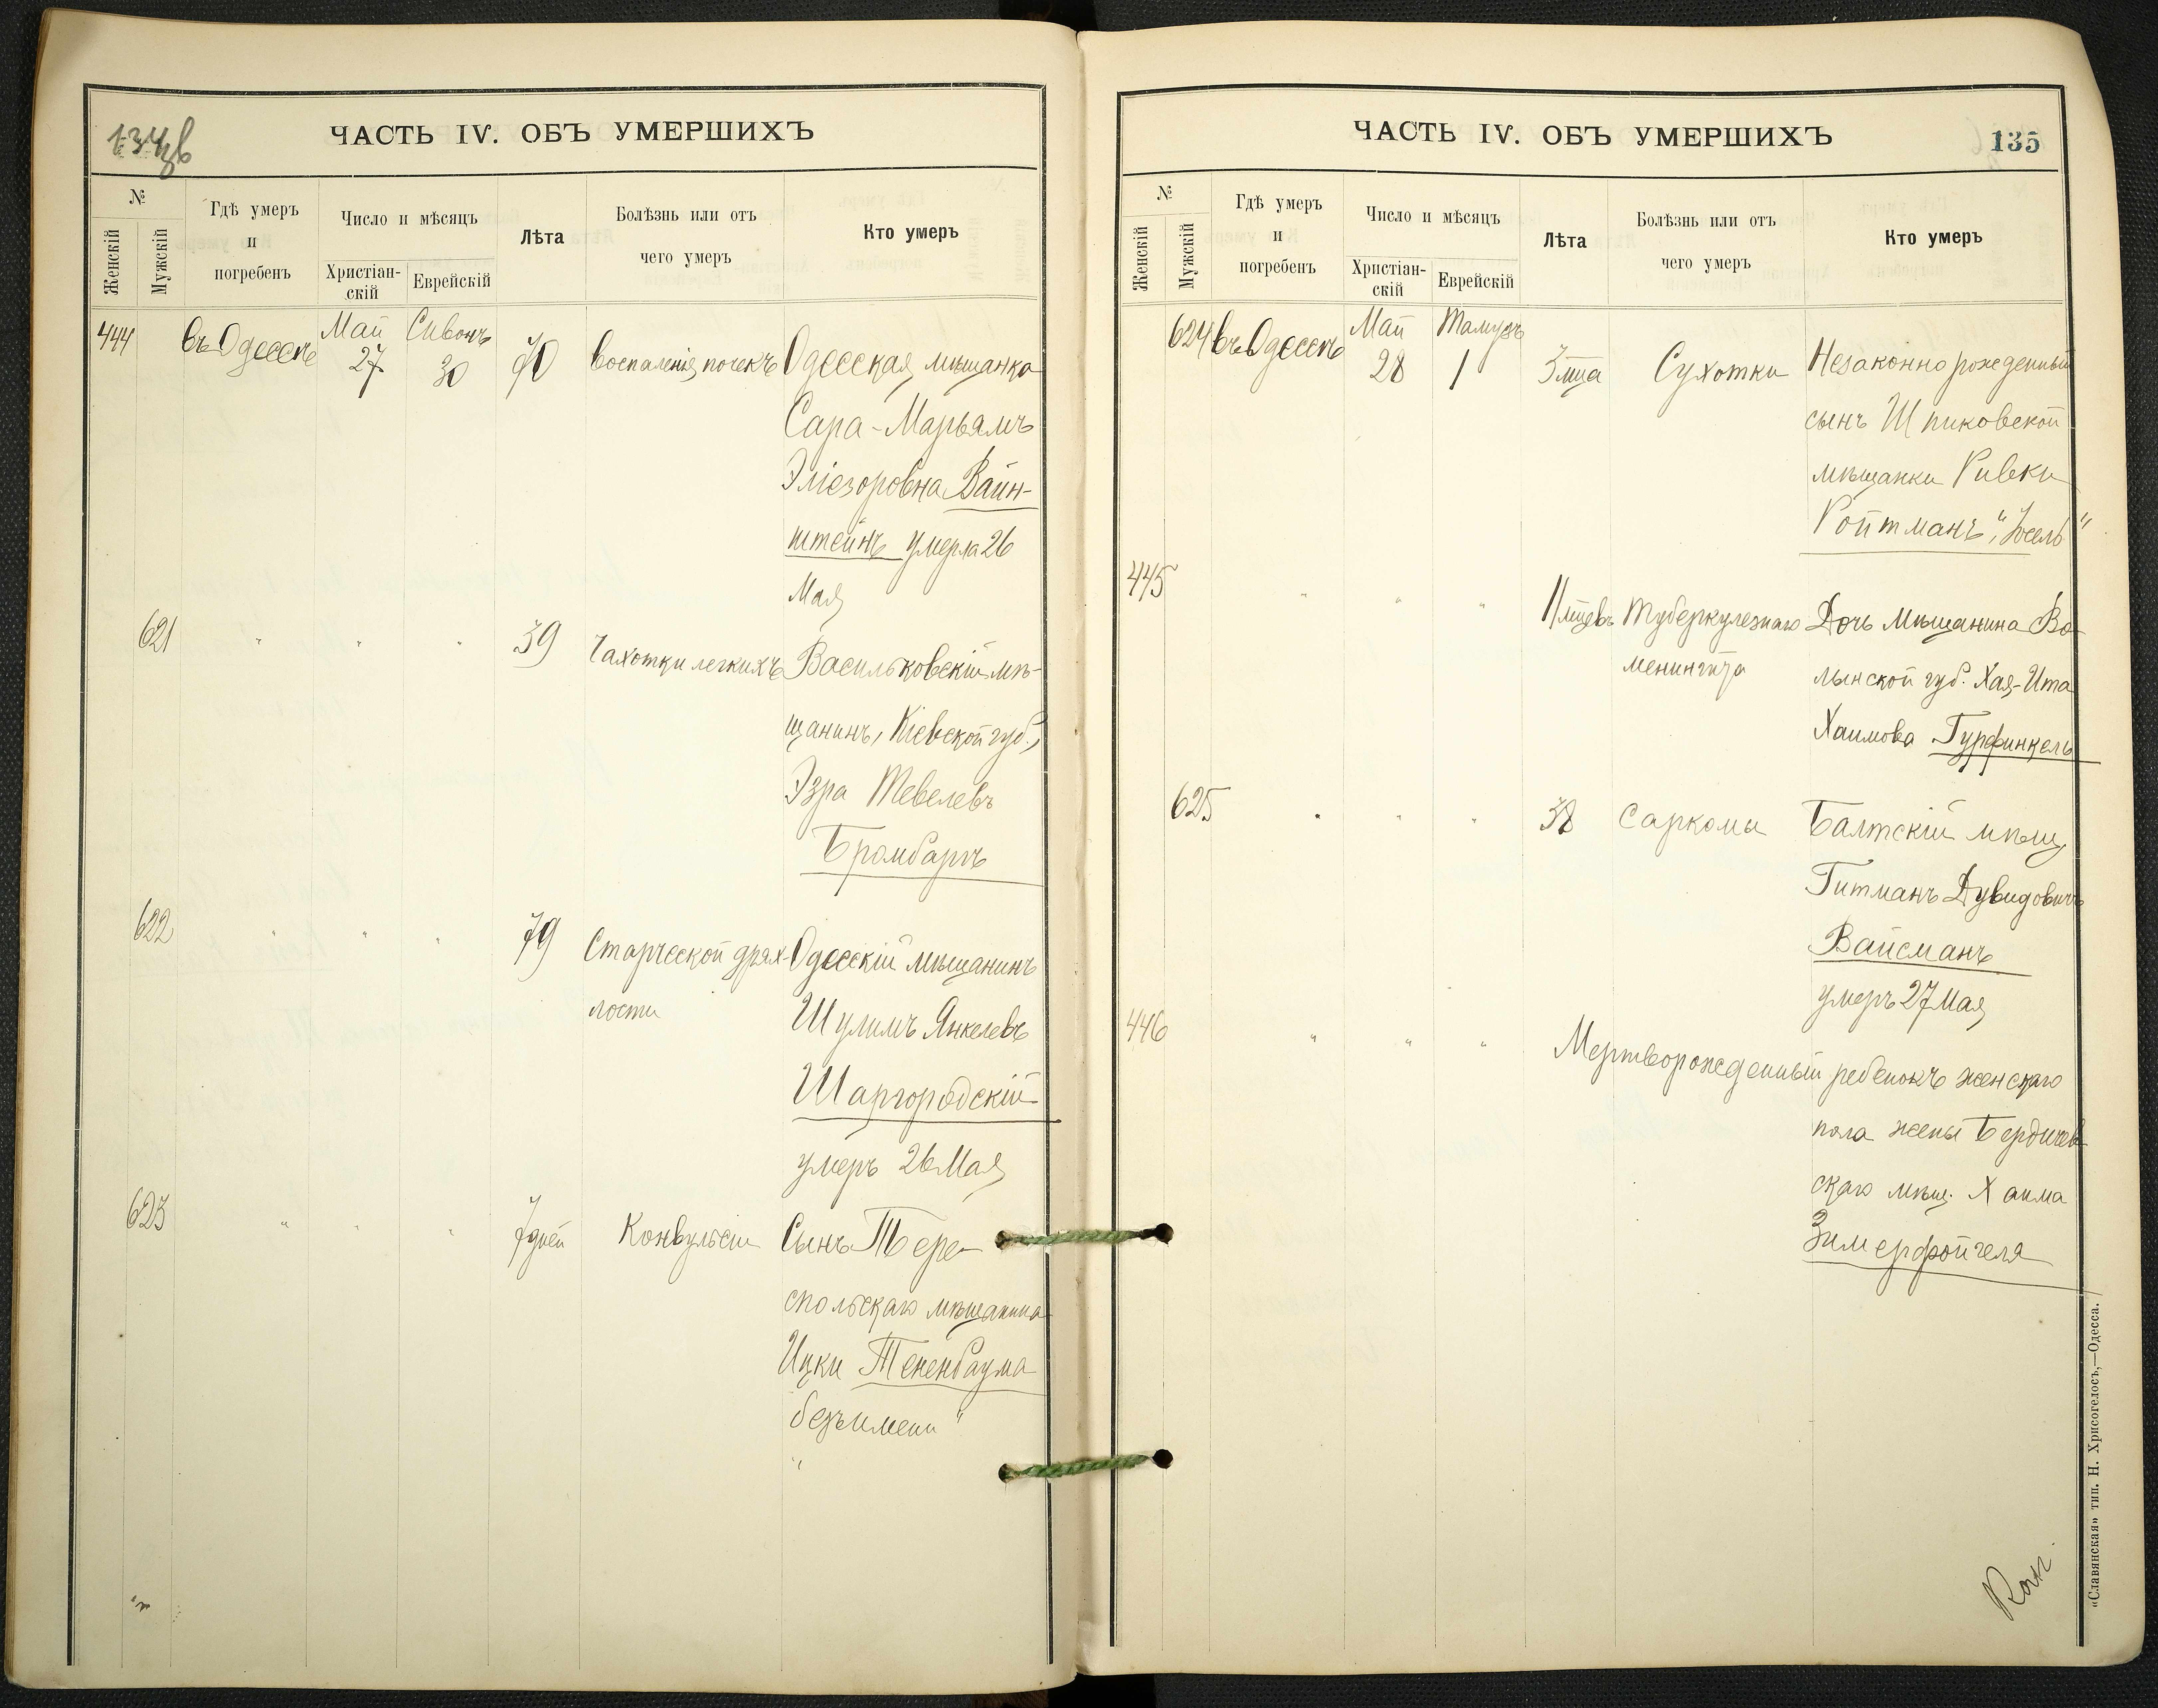 134 об
ЧАСТЬ IV. ОБЪ УМЕРШИХЪ
№
Женскій
Мужскій
Гдѣ умеръ
и
погребенъ
Число и мѣсяцъ
Христіан-
скій
Еврейскій
Лѣта
Болѣзнь или отъ
чего умеръ
Кто умеръ
444 въ Одессѣ Май 27 Сивонъ 30 70 Воспаленія почекъ Одесская мѣщанка
Сара-Марьямъ
Эліезоровна Вайн-
штейнъ умерла 26
Мая
621 " " " 39 Чахотки легкихъ Васильковскій мѣ-
щанинъ, Кіевской губ.,
Эзра Тевелевъ
Бромбергъ
622 " " " 79 Старческой дрях- Одесскій мѣщанинъ
лости Шулимъ Янкелевъ
Шаргородскій
умеръ 26 Мая
623 " " " 7 дней Конвульсіи Сынъ Тере-
спольскаго мѣщанина
Ицки Тененбаума
"безъимени"
ЧАСТЬ IV. ОБЪ УМЕРШИХЪ
135
№
Женскій
Мужскій
Гдѣ умеръ
и
погребенъ
Число и мѣсяцъ
Христіан-
скій
Еврейскій
Лѣта
Болѣзнь или отъ
чего умеръ
Кто умеръ
624 въ Одессѣ Май 28 Тамузъ 1 3 мца Сухотки Незаконнорожденный
сынъ Шпиковской
мѣщанки Ривки
Ройтманъ, "Іосель"
445 " " " 11 мцевъ Туберкулезнаго Дочь мѣщанина Во-
менингита лынской губ. Хая-Ита
Хаимова Гурфинкель
625 " " " 38 Саркомы Балтскій мѣщ.
Гитманъ Дувидовичъ
Вайсманъ
умеръ 27 Мая
446 " " " Мертворожденный ребенокъ женскаго
пола жены Бердичев-
скаго мѣщ. Хаима
Зимерфойгеля
«Славянская» тип. Н. Хрисогелосъ,—Одесса.